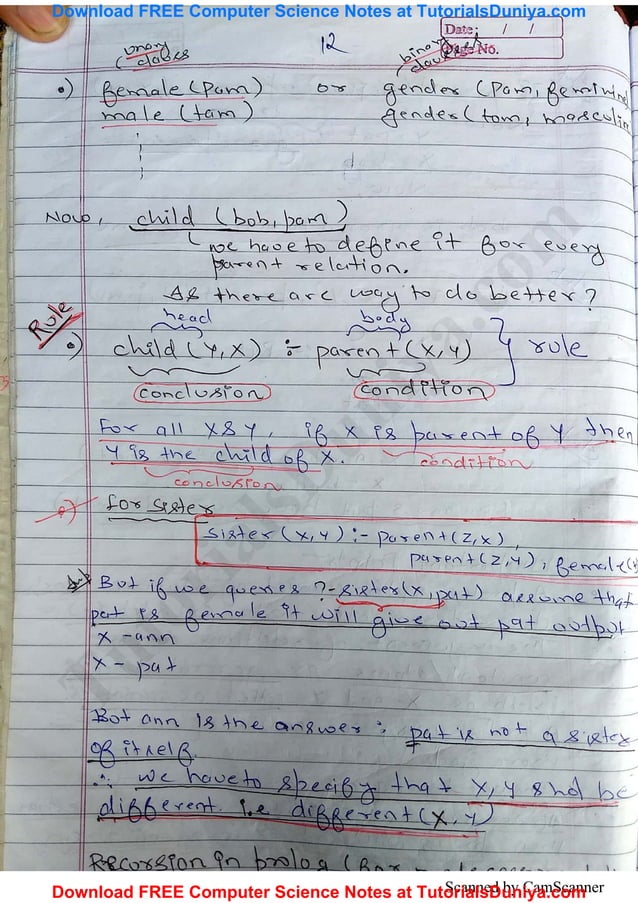 Download FREE Computer Science Notes at TutorialsDuniya.com
Date: / /
Page No.
12
unary clauses
binary clauses
female (pam) or gender (pam, feminine
male (tom) gender (tom, masculin
Now, child (bob, pam)
we have to define it for every
parent relation.
As there are way to do better?
Rule
head body
child (Y, X) :- parent (X, Y) } rule
conclusion condition
For all X & Y, if X is parent of Y then
Y is the child of X.
condition
conclusion
for sister
sister (X, Y) :- parent (Z, X),
parent (Z, Y), female (
But if we queries ?- sister (X, pat) assume that
pat is female it will give out pat output
X - ann
X - pat
But ann is the answer ∵ pat is not a sister
of itself.
∴ we have to specify that X, Y shd be
different. i.e different (X, Y)
Recursion in prolog (For
Download FREE Computer Science Notes at TutorialsDuniya.com
Scanned by CamScanner